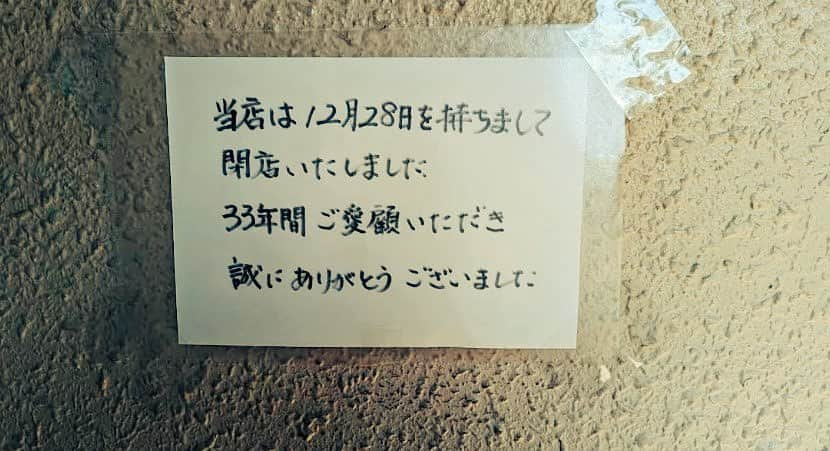 当店は12月28日を持ちまして
閉店いたしました
33年間 ご愛顧いただき
誠に ありがとう ございました